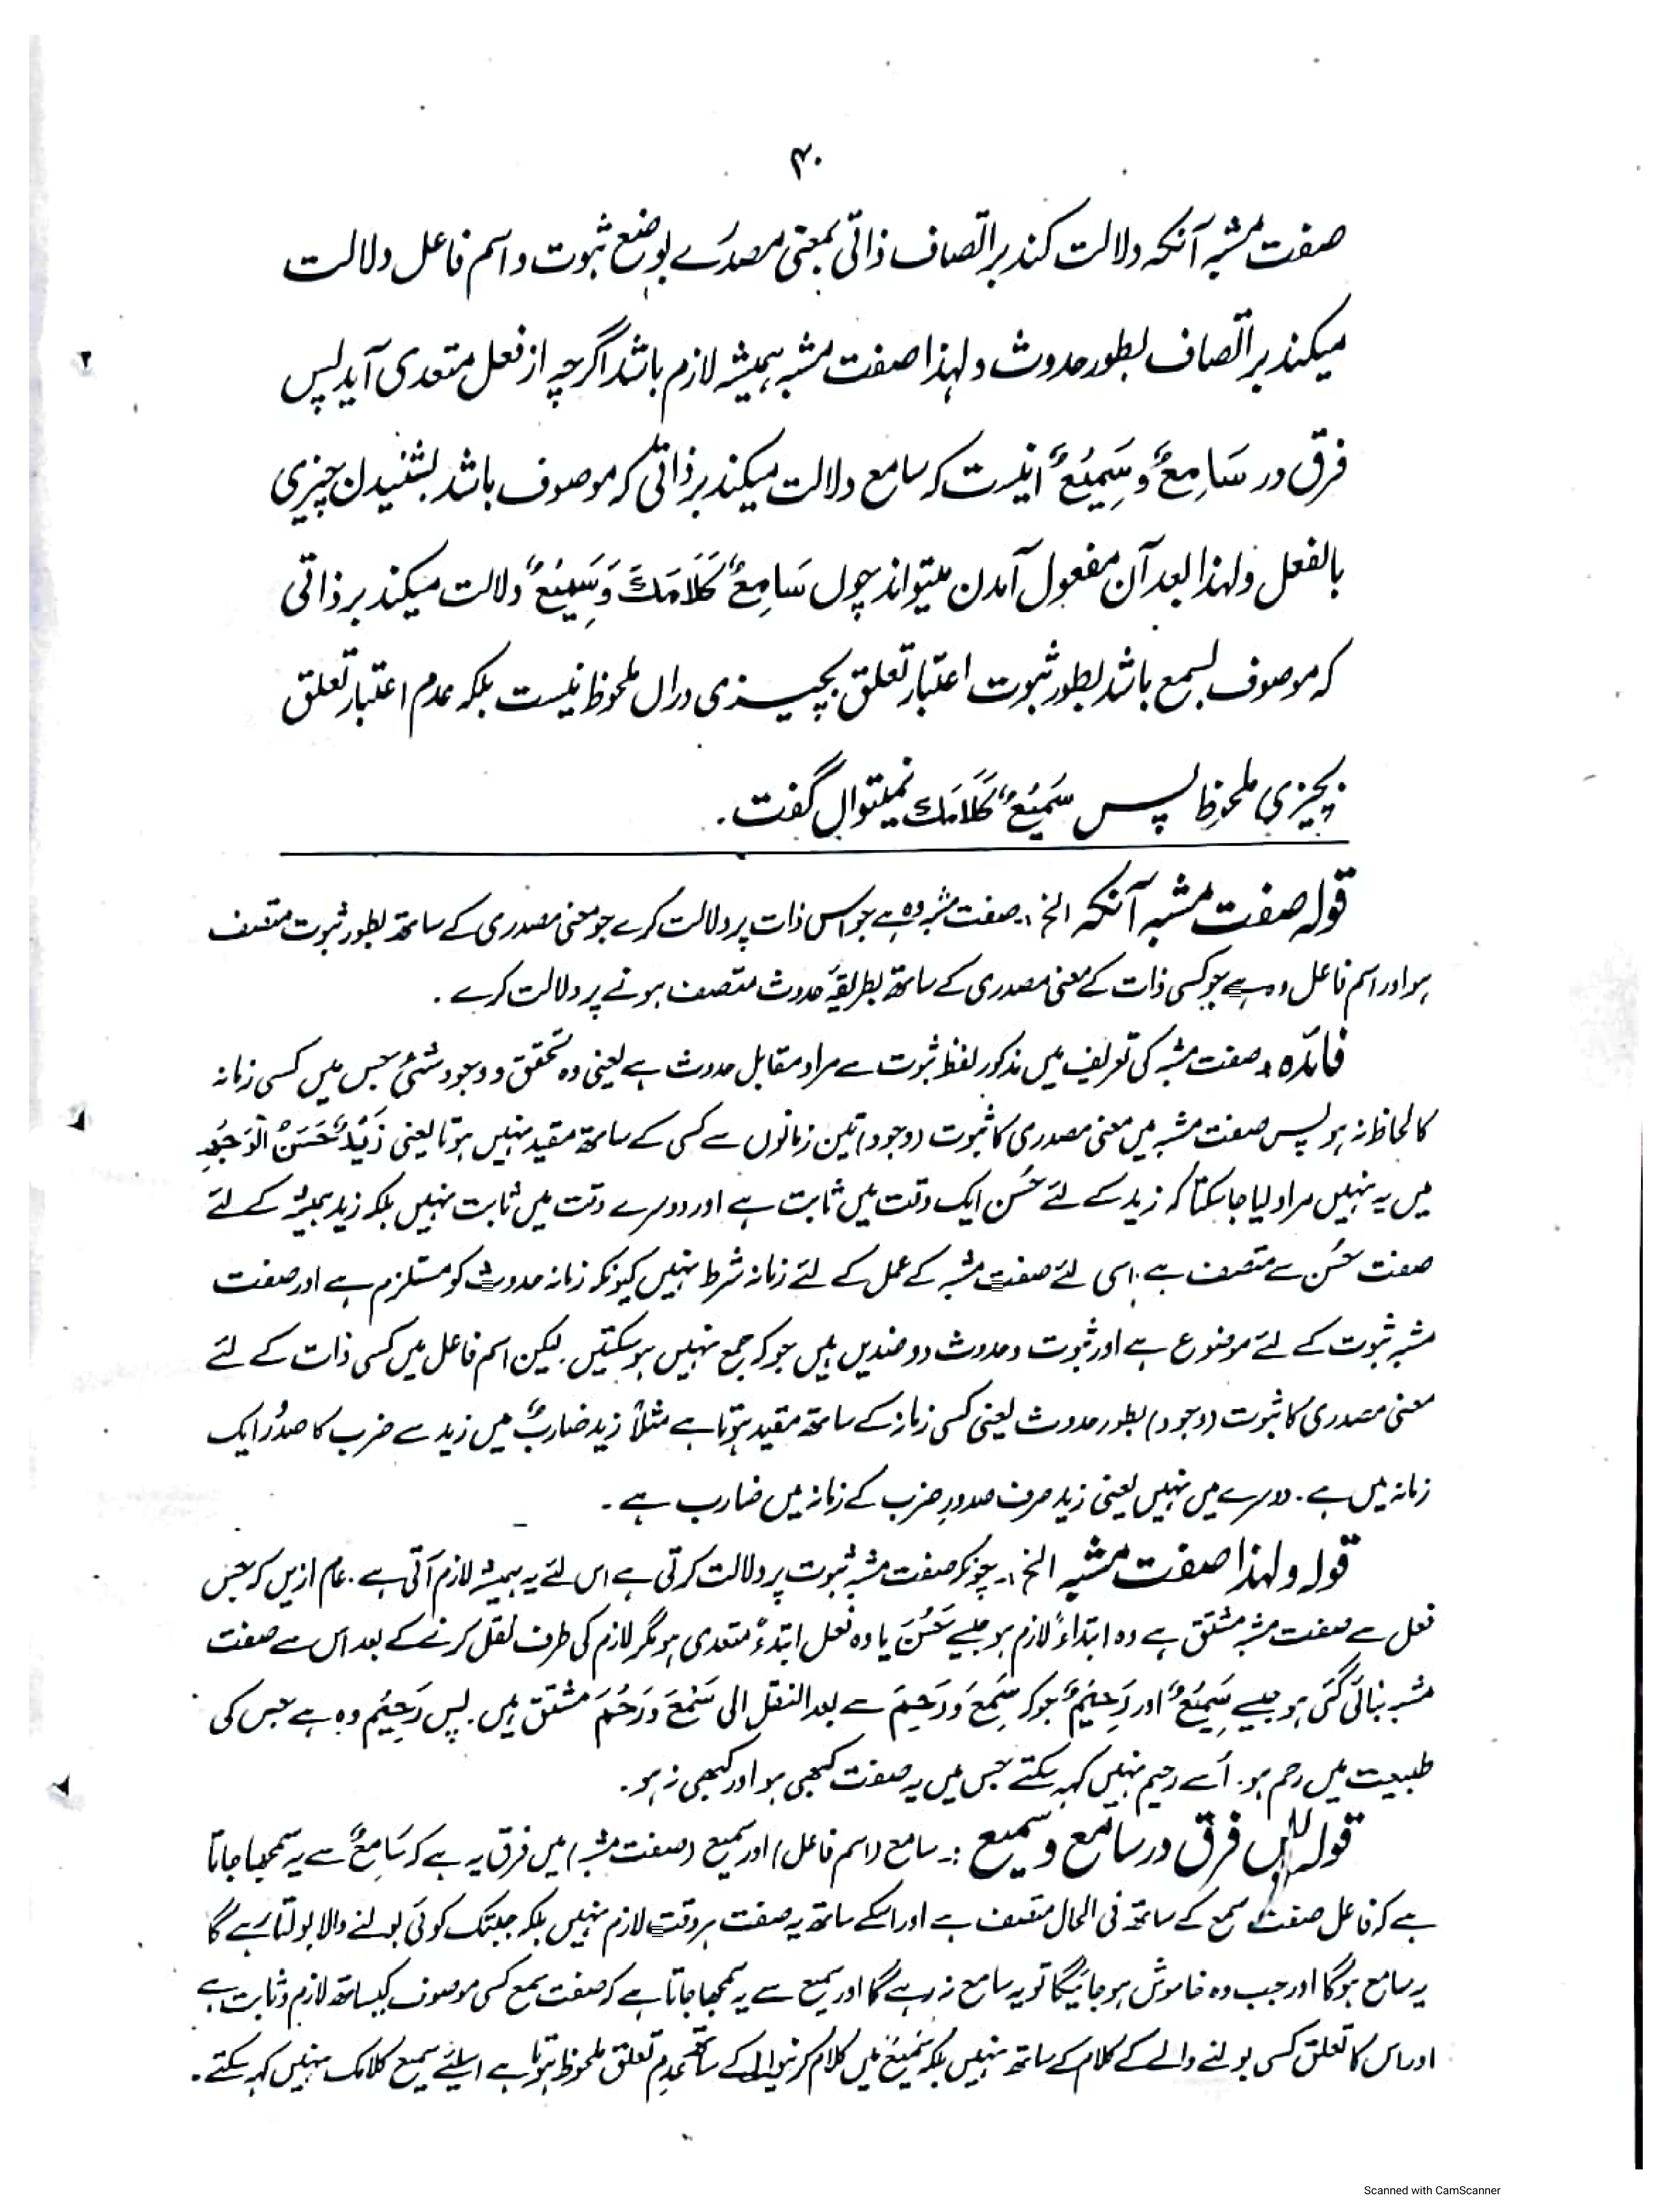 ۴۰
صفت مشبہ آنکہ دلالت کند بر اتصاف ذاتی بمعنی مصدرے بوضع ثبوت و اسم فاعل دلالت
میکند بر اتصاف بطور حدوث ولہذا صفت مشبہ ہمیشہ لازم باشد اگرچہ از فعل متعدی آید پس
فرق در سَامِعٌ وَسَمِيْعٌ اینست کہ سامع دلالت میکند بر ذاتی کہ موصوف باشد بشنیدن چیزی
بالفعل ولہذا بعد آن مفعول آمدن میتواند چوں سَامِعٌ كَلَامَكَ وَسَمِيْعٌ دلالت میکند بر ذاتی
کہ موصوف بسمع باشد بطور ثبوت اعتبار تعلق بچیزی دراں ملحوظ نیست بلکہ عدم اعتبار تعلق
بچیزی ملحوظ پس سَمِيْعٌ كَلَامَكَ نمیتواں گفت۔
قولہ صفت مشبہ آنکہ الخ :۔ صفت مشبہ وہ ہے جو اس ذات پر دلالت کرے جو معنی مصدری کے ساتھ بطور ثبوت متصف
ہو اور اسم فاعل وہ ہے جو کسی ذات کے معنی مصدری کے ساتھ بطریقۂ حدوث متصف ہونے پر دلالت کرے ۔
فائدہ :۔ صفت مشبہ کی تعریف میں مذکور لفظ ثبوت سے مراد مقابل حدوث ہے یعنی وہ تحقق و وجود شئ جس میں کسی زمانہ
کا لحاظ نہ ہو پس صفت مشبہ میں معنی مصدری کا ثبوت (وجود) تین زمانوں سے کسی کے ساتھ مقید نہیں ہوتا یعنی زَيْدٌ حَسَنُ الْوَجْهِ
میں یہ نہیں مراد لیا جا سکتا کہ زید کے لئے حُسن ایک وقت میں ثابت ہے اور دوسرے وقت میں ثابت نہیں بلکہ زید ہمیشہ کے لئے
صفت حُسن سے متصف ہے۔ اسی لئے صفت مشبہ کے عمل کے لئے زمانہ شرط نہیں کیونکہ زمانہ حدوث کو مستلزم ہے اور صفت
مشبہ ثبوت کے لئے موضوع ہے اور ثبوت و حدوث دو ضدیں ہیں جو کہ جمع نہیں ہو سکتیں۔ لیکن اسم فاعل میں کسی ذات کے لئے
معنی مصدری کا ثبوت (وجود) بطور حدوث یعنی کسی زمانہ کے ساتھ مقید ہوتا ہے مثلاً زید ضاربٌ میں زید سے ضرب کا صدُور ایک
زمانہ میں ہے ۔ دوسرے میں نہیں یعنی زید صرف صدورِ ضرب کے زمانہ میں ضارب ہے ۔
قولہ ولہذا صفت مشبہ الخ :۔ چونکہ صفت مشبہ ثبوت پر دلالت کرتی ہے اس لئے یہ ہمیشہ لازم آتی ہے۔ عام ازیں کہ جس
فعل سے صفت مشبہ مشتق ہے وہ ابتداءً لازم ہو جیسے حَسُنَ یا وہ فعل ابتداءً متعدی ہو مگر لازم کی طرف نقل کرنے کے بعد اس سے صفت
مشبہ بنائی گئی ہو جیسے سَمِيْعٌ اور رَحِيْمٌ جو کہ سَمِعَ وَرَحِمَ سے بعد النقل الی سَمُعَ وَرَحُمَ مشتق ہیں۔ پس رَحِیْم وہ ہے جس کی
طبیعت میں رحم ہو۔ اُسے رحیم نہیں کہہ سکتے جس میں یہ صفت کبھی ہو اور کبھی نہ ہو۔
قولہ پس فرق در سامع و سمیع :۔ سامع (اسم فاعل) اور سمیع (صفت مشبہ) میں فرق یہ ہے کہ سَامِعٌ سے یہ سمجھا جاتا
ہے کہ فاعل صفت سمع کے ساتھ فی الحال متصف ہے اور اسکے ساتھ یہ صفت ہر وقت لازم نہیں بلکہ جبتک کوئی بولنے والا بولتا رہے گا
یہ سامع ہوگا اور جب وہ خاموش ہو جائیگا تو یہ سامع نہ رہے گا اور سمیع سے یہ سمجھا جاتا ہے کہ صفت سمع کسی موصوف کیساتھ لازم و ثابت ہے
اور اس کا تعلق کسی بولنے والے کے کلام کے ساتھ نہیں بلکہ سَمِیْعٌ میں کلام کرنیوالے کے ساتھ عدم تعلق ملحوظ ہوتا ہے اسلئے سمیع کلامک نہیں کہہ سکتے۔
Scanned with CamScanner